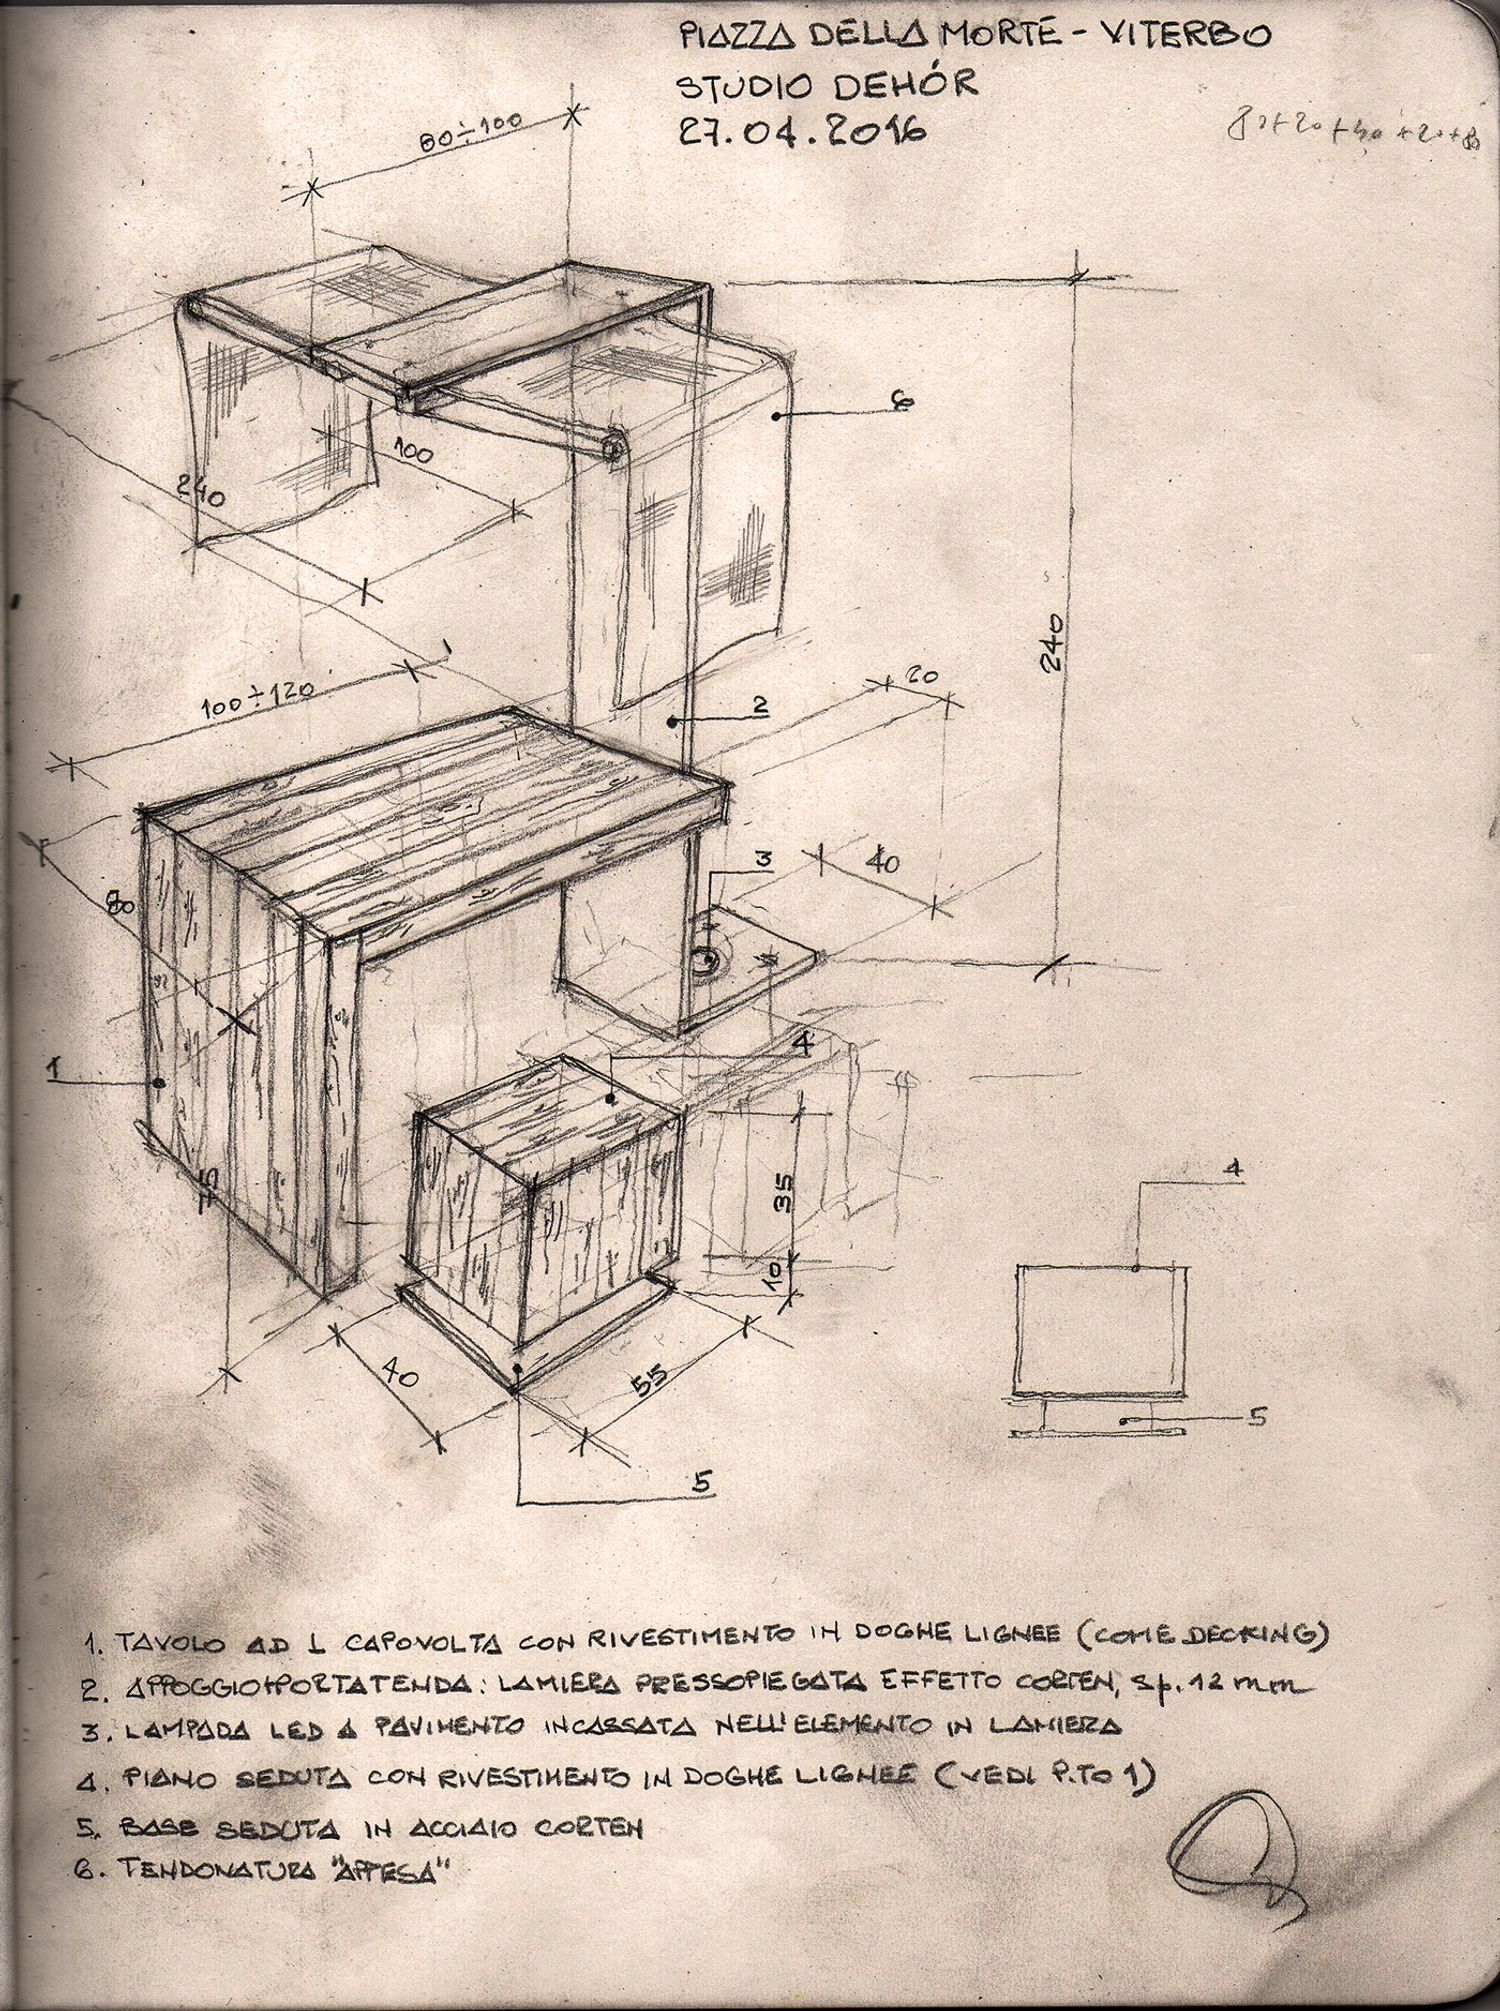 PIAZZA DELLA MORTE - VITERBO
STUDIO DEHÓR
27.04.2016
80÷100
6
100
240
240
100÷120
2
20
80
3
40
1
4
75
35
10
4
40
55
5
5
1. TAVOLO AD L CAPOVOLTA CON RIVESTIMENTO IN DOGHE LIGNEE (COME DECKING)
2. APPOGGIO+PORTATENDA: LAMIERA PRESSOPIEGATA EFFETTO CORTEN, sp. 12 mm
3. LAMPADA LED A PAVIMENTO INCASSATA NELL'ELEMENTO IN LAMIERA
4. PIANO SEDUTA CON RIVESTIMENTO IN DOGHE LIGNEE (VEDI P.TO 1)
5. BASE SEDUTA IN ACCIAIO CORTEN
6. TENDONATURA "APPESA"